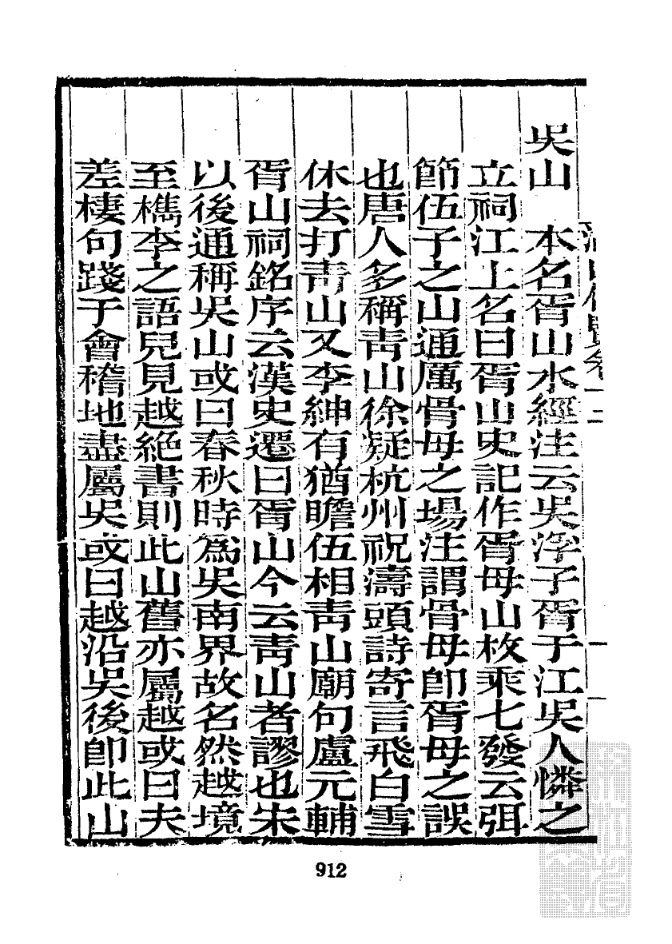 吳山　本名胥山水經注云吳浮子胥于江吳人憐之
立祠江上名曰胥山史記作胥母山枚乘七發云弭
節伍子之山通厲骨母之場注謂骨母卽胥母之誤
也唐人多稱靑山徐疑杭州祝濤頭詩寄言飛白雪
休去打靑山又李紳有猶瞻伍相靑山廟句盧元輔
胥山祠銘序云漢史遷曰胥山今云靑山者謬也宋
以後通稱吳山或曰春秋時爲吳南界故名然越境
至檇李之語兒見越絶書則此山舊亦屬越或曰夫
差棲句踐于會稽地盡屬吳或曰越沿吳後卽此山
912